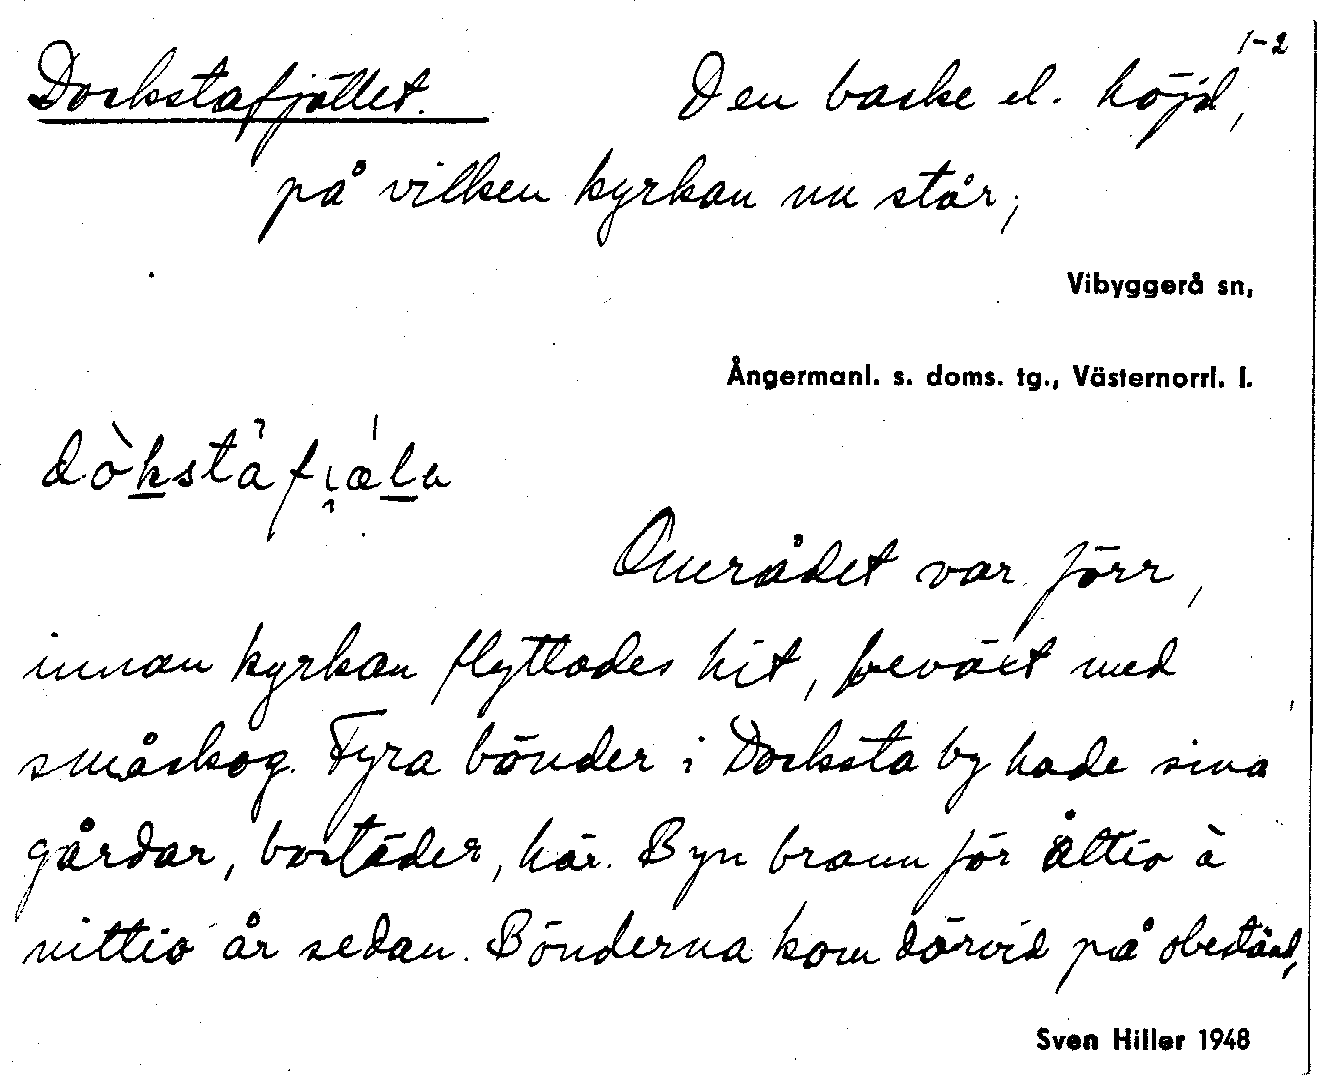 1-2
Dockstafjället. Den backe el. höjd,
på vilken kyrkan nu står;
Vibyggerå sn,
Ångermanl. s. doms. tg., Västernorrl. l.
Området var förr,
innan kyrkan flyttades hit, beväxt med
småskog. Fyra bönder i Docksta by hade sina
gårdar, bostäder, här. Byn brann för åttio à
nittio år sedan. Bönderna kom därvid på obestånd,
Sven Hiller 1948